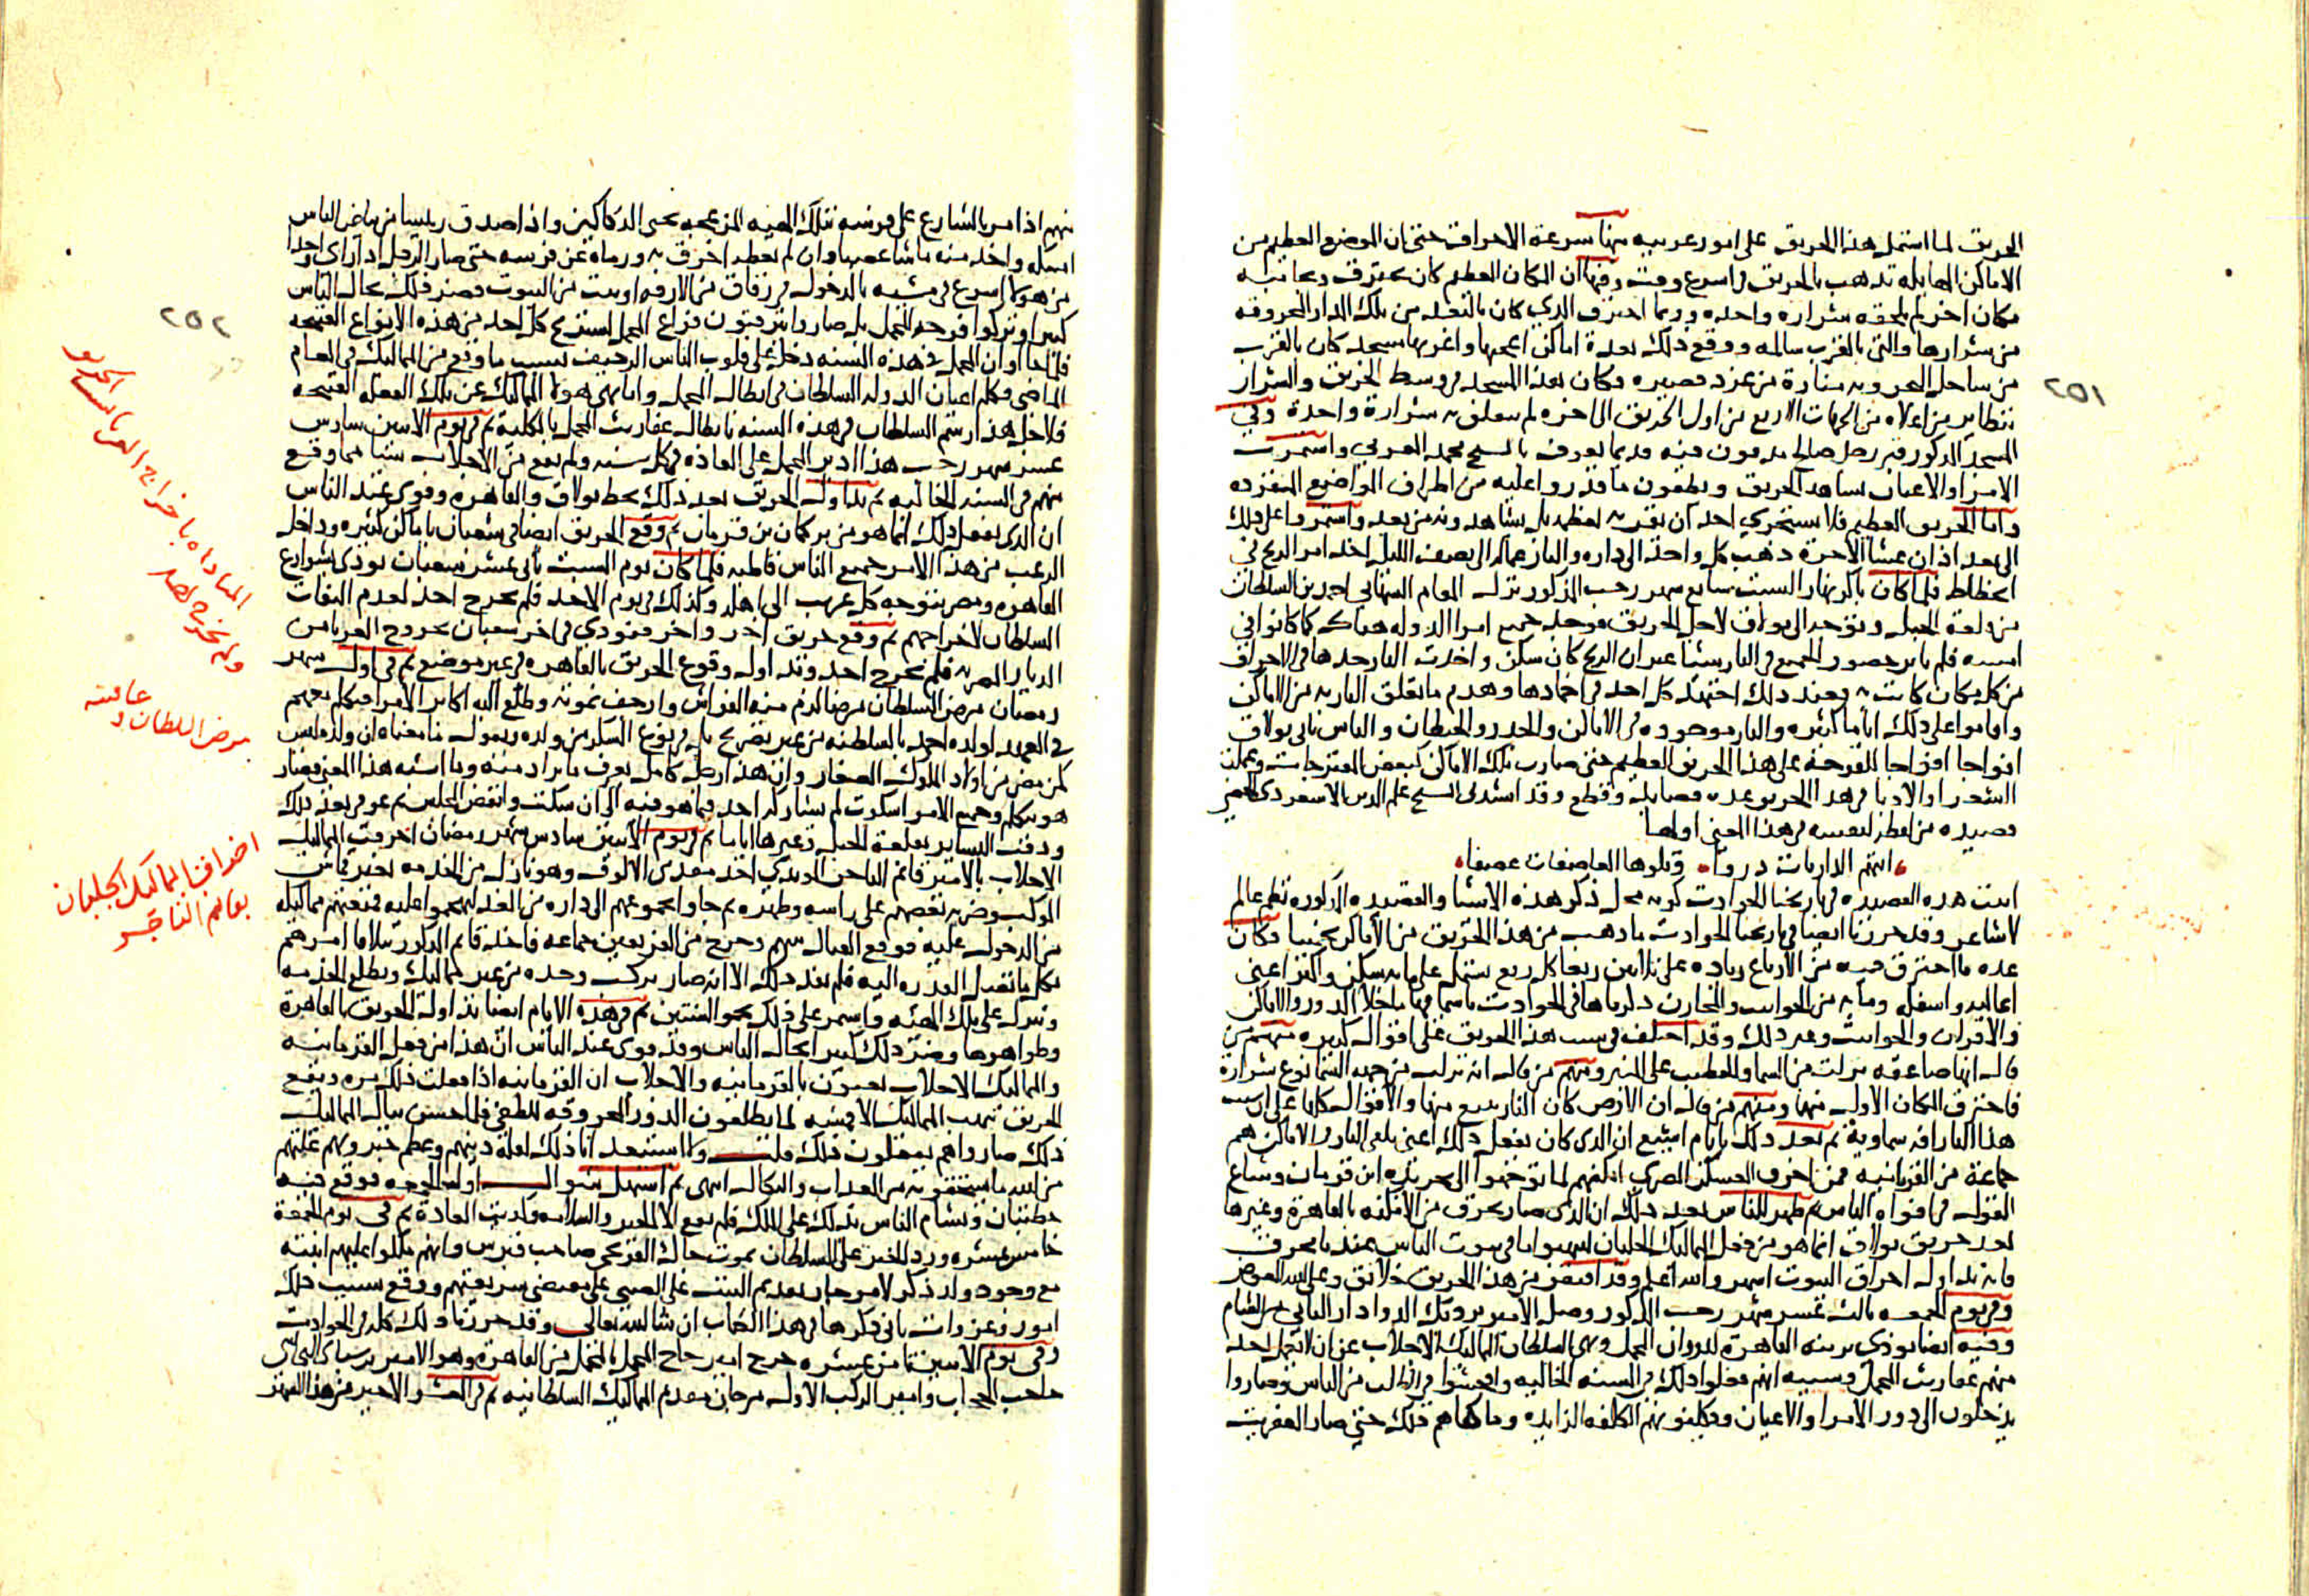 الحريق لما اشتمل هذا الحريق على امور غريبه منها سرعة الاحراق حتى ان الموضع العظيم من
الاماكن الهايلة يذهب بالحريق في اسرع وقت ومنها ان المكان العظيم كان يحترق وبجانبه
مكان اخر لم تلحقه شراره واحده وربما احترق الذي كان بالبعد من تلك الدار المحروقه
من شرارها والتي بالقرب سالمه ووقع ذلك بعدة اماكن اعجبها واغربها مسجد كان بالقرب
من ساحل البحر وبه منارة من غرد قصيره وكان هذا المسجد في وسط الحريق والشرار
يتطاير من اعلاه من الجهات الاربع من اول الحريق الى اخره لم يتعلق به شرارة واحدة وفي
المسجد المذكور قبر رجل صالح مدفون فيه قديما يعرف بالشيخ محمد المغربي واستمرت
الامرا والاعيان تشاهد الحريق ويطفون ما قدروا عليه من اطراف المواضيع المنفرده
واما الحريق العظيم فلا يستجري احد ان يقربه لعظمه بل يشاهدونه من بعد واستمروا على ذلك
الى بعد اذان عشا الاخرة ذهب كل واحد الى داره والنار عماله الى نصف الليل اخذ امر الريح في
انحطاط فلما كان باكر نهار السبت سابع شهر رجب المذكور نزل المقام الشهابي احمد بن السلطان
من قلعة الجبل وتوجه الى بولاق لاجل الحريق فوجد جميع امرا الدوله هناك كما كانوا في
امسه فلم ياثر حضور الجميع في النار شيا غير ان الريح كان سكن واخذت النار حدها في الاحراق
من كل مكان كانت به فعند ذلك اجتهد كل احد في اخمادها وهدم ما تعلق النار به من الاماكن
واقاموا على ذلك اياما كثيره والنار موجوده في الاماكن والجدر والحيطان والناس تاتي بولاق
افواجا افواجا للفرجة على هذا الحريق العظيم حتى صارت تلك الاماكن كبعض المفترجات وعملت
الشعرا والادبا في هذا الحريق عدة قصايد وقطع وقد انشدني الشيخ علم الدين الاسعردي الحصني
قصيده من لفظه لنفسه في هذا المعنى اولها
اتتهم الذاريات ذروا وتلوها العاصفات عصفا
اثبت هذه القصيده في تاريخنا الحوادث كونه محل ذكر هذه الاشيا والقصيده المذكوره نظم عالم
لا شاعر وقد حررنا ايضا في تاريخنا الحوادث ما ذهب من هذا الحريق من الاماكن تخمينا فكان
عدة ما احترق فيه من الارباع زياده على ثلاثين ربعا كل ربع يشتمل على مايه سكن واكثر اعني
اعاليه واسفله وما به من الحوانيت والمخازن ذكرناها في الحوادث باسمايها ما خلا الدور والاماكن
والافران والحوانيت وغير ذلك وقد اختلف في سبب هذا الحريق على اقوال كثيره فمنهم من
قال انها صاعقه نزلت من السما والخطيب على المنبر ومنهم من قال انه نزلت من جهة السما نوع شرارة
فاحترق المكان الاول منها ومنهم من قال ان الارض كان النار ينبع منها والاقوال كلها على ان سبب
هذا النار افه سماوية ثم بعد ذلك بايام اشيع ان الذي كان يفعل ذلك اعني يلقي النار في الاماكن هم
جماعة من القرمانيه ممن احرق العسكر المصري امكنتهم لما توجهوا الى تجريدة ابن قرمان وشاع
القول في افواه الناس ثم ظهر للناس بعد ذلك ان الذي صار يحرق من الامكنه بالقاهرة وغيرها
بعد حريق بولاق انما هو من فعل المماليك الجلبان لينهبوا ما في بيوت الناس عندما يحرق
فانه تداول احراق البيوت اشهر والله اعلم وقد افتقر من هذا الحريق خلايق وعلى الله العوض
وفي يوم الجمعه ثالث عشر شهر رجب المذكور وصل الامير بردبك الدوادار الثاني من الشام
وفيه ايضا نودي بزينة القاهرة لدوران المحمل ونهى السلطان المماليك الاجلاب عن ان لا يعمل احد
منهم عفاريت المحمل وسببه انهم فعلوا ذلك في السنه الخاليه وافحشوا في الطلب من الناس وصاروا
يدخلون الى دور الامرا والاعيان ويكلفونهم الكلفه الزايده وما كفاهم ذلك حتى صار العفريت
٢٥١
منهم اذا مر بالشارع على فرسه بتلك الهيئه المزعجه يجبي الدكاكين واذا صدف رييسا من بياض الناس
امسكه واخذ منه ما شا غصبا وان لم يعطه اخرق به ورماه عن فرسه حتى صار الرجل اذا راى واحدا
من هولاء اسرع في مشيه بالدخول في زقاق من الازقه او بيت من البيوت فضر ذلك بحال الناس
كثيرا وتركوا فرجة المحمل بل صاروا يترقبون فراغ المحمل ليستريح كل احد من هذه الانواع القبيحه
فلما جا اوان المحمل في هذه السنه دخل على قلوب الناس الرجيف بسبب ما وقع من المماليك في العام
الماضي فكلم اعيان الدوله السلطان في ابطال المحمل واما نهي هولاء المماليك عن تلك الفعله القبيحه
فلاجل هذا رسم السلطان في هذه السنه بابطال عفاريت المحمل بالكلية ثم في يوم الاثنين سادس
عشر شهر رجب هذا ادير المحمل على العاده في كل سنه ولم يقع من الاجلاب شيا مما وقع
منهم في السنه الخاليه ثم تداول الحريق بعد ذلك بخط بولاق والقاهره وقوي عند الناس
ان الذي يفعل ذلك انما هو من تركمان بن قرمان ثم وقع الحريق ايضا في شعبان باماكن كثيره وداخل
الرعب من هذا الامر جميع الناس قاطبه فلما كان يوم السبت ثاني عشر شعبان نودي بشوارع
القاهره ومصر بتوجه كل غريب الى اهله وكذلك في يوم الاحد فلم يخرج احد لعدم التفات
السلطان لاخراجهم ثم وقع حريق اخر واخر فنودي في اخر شعبان بخروج الغربا من
الديار المصريه فلم يخرج احد وتداول وقوع الحريق بالقاهره في غير موضع ثم في اول شهر
رمضان مرض السلطان مرضا لزم منه الفراش وارجف بموته وطلع اليه اكابر الامرا فكلم بعضهم
في العهد لولده احمد بالسلطنه من غير تصريح بل في نوع الشكر من ولده ويقول ما معناه ان ولده ليس
كمن مضى من اولاد الملوك الصغار وان هذا رجل كامل يعرف ما يراد منه وما اشبه هذا المعنى فصار
هو يتكلم وجميع الامرا سكوت لم يشاركه احد فيما هو فيه الى ان سكت وانفض المجلس ثم عوفي بعد ذلك
ودقت البشاير بقلعة الجبل وغيرها اياما ثم في يوم الاثنين سادس شهر رمضان اخرقت المماليك
الاجلاب بالامير قانم التاجر المويدي احد مقدمي الالوف وهو نازل من الخدمه بغير قماش
الموكب وضربه بعضهم على راسه وظهره ثم جاوا بجموعهم الى داره من الغد ليهجموا عليه فمنعتهم مماليكه
من الدخول عليه فوقع القتال بينهم وجرح من الفريقين جماعه فاخذ قانم المذكور يتلافا امرهم
بكل ما تصل القدره اليه فلم يفد ذلك الا انه صار يركب وحده من غير مماليك ويطلع الخدمه
وينزل على تلك الهيئه واستمر على ذلك نحو السنتين ثم في هذه الايام ايضا تداول الحريق بالقاهرة
وظواهرها وضر ذلك كثيرا بحال الناس وقد قوي عند الناس ان هذا من فعل القرمانيه
والمماليك الاجلاب يعنون بالقرمانيه والاجلاب ان القرمانيه اذا فعلت ذلك مره ووقع
الحريق تنهب المماليك الاقمشه لما يطلعون الدور المحروقه للطفي فلما حسن ببال المماليك
ذلك صاروا هم يفعلون ذلك قلت ولا استبعد انا ذلك لقلة دينهم وعظم جبروتهم عليهم
من الله ما يستحقونه من العذاب والنكال انتهى ثم استهل شوال اوله الجمعه فوقع فيه
خطبتان وتشام الناس بذلك على الملك فلم يقع الا الخير والسلامه وكذبت العادة ثم في يوم الجمعة
خامس عشره ورد الخبر على السلطان بموت جاك الفرنجي صاحب قبرس وانهم ملكوا عليهم ابنته
مع وجود ولد ذكر لامر جايز بتقديم البنت على الصبي على مقتضى شريعتهم ووقع بسبب ذلك
امور وغزوات ياتي ذكرها في هذا الكتاب ان شا الله تعالى وقد حررنا ذلك كله في الحوادث
وفي يوم الاثنين ثامن عشره خرج امير حاج المحمل بالمحمل من القاهرة وهو الامير برسباي البجاسي
حاجب الحجاب وامير الركب الاول مرجان مقدم المماليك السلطانيه ثم في العشر الاخير من هذا الشهر
٢٥٢
المناداه باخراج الغربا بسبب الحريق
ولم يخرج احد
مرض السلطان و عافيته
اخراق المماليك الجلبان
بقانم التاجر